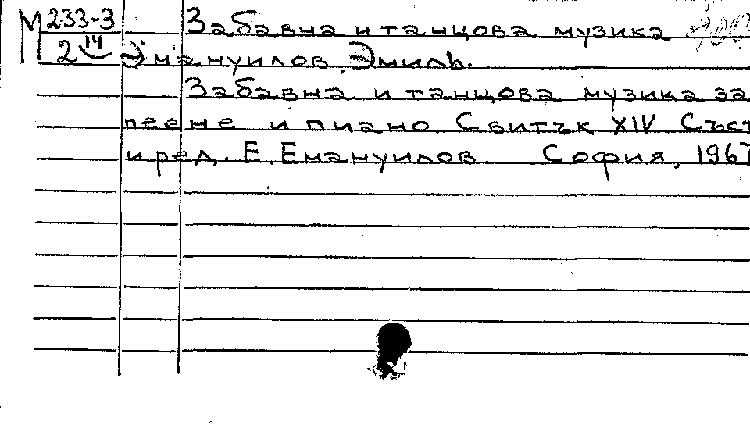 М 233-3 Забавна и танцова музика
2 14 Эмануилов, Эмиль.
Забавна и танцова музика за
пеене и пиано. Свитък XIV Съст
и ред. Е. Емануилов София, 1967